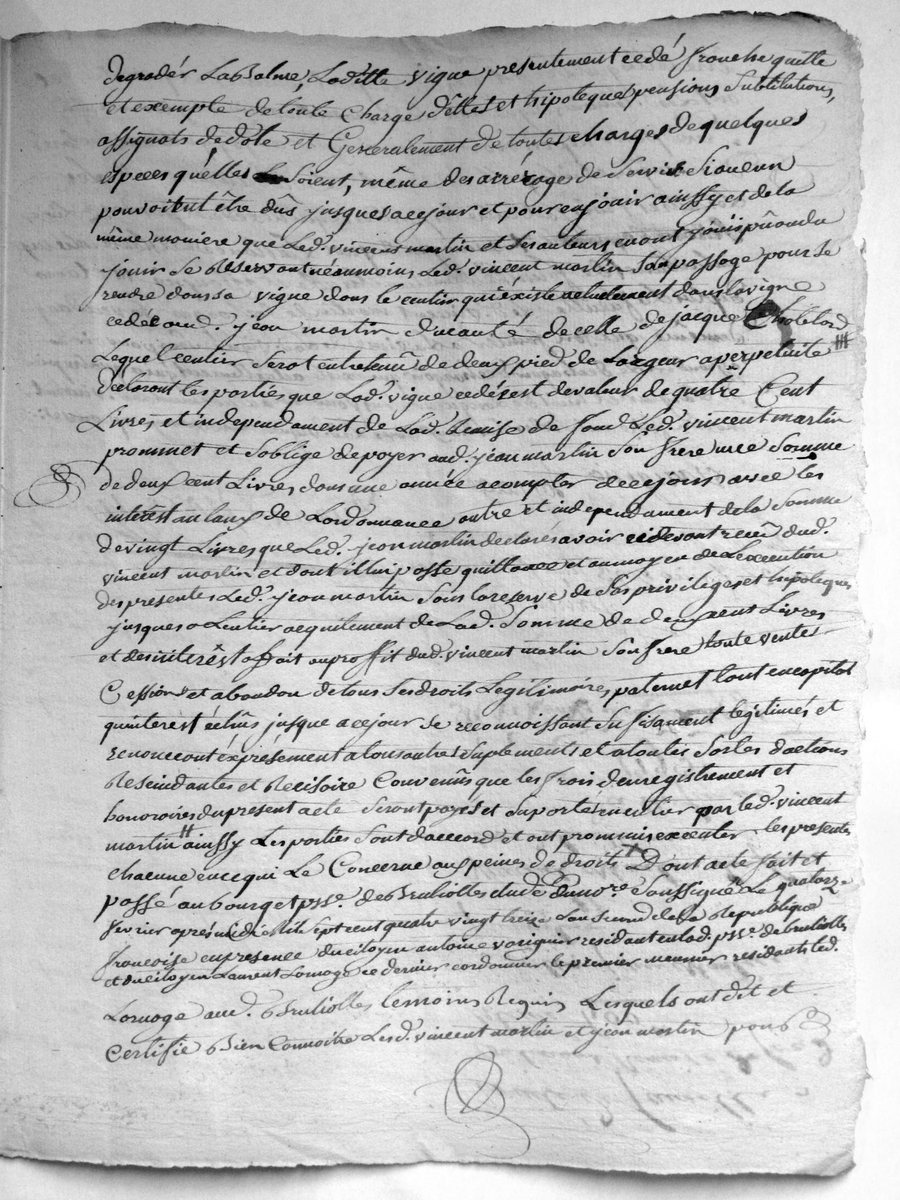 degradér Labalme, Laditte vigne presentement cedé franche quitte
et exempte detoute Charge dêttes et hipoteques pensions Substitutions,
assignats dedôte et Generalement detoutes charges dequelques
especes quélles Soient, même desarrérage de Servis Siaucun
pouvoitent être dûs jusques acejour et pourenjouir ainssy et dela
même maniere que Led. vincent martin et Sesauteurs enont jouis pû ou du
jouir Se Réservant néanmoins Led. vincent martin Sonpassage pour Se
rendre danssa vigne dans le centier quiéxiste actuelement danslavigne
cedée aud. jean martin ducauté decelle deJacque
Lequel centier Serat entretenû de deux pied de Largeur aperpetuité
Déclarant lesparties que Lad. vigne cedée est devaleur dequatre Cent
Livres et independament de Lad. Remise de fond Led. vincent martin
prommet et Soblige depayer aud. jean martin Son frere une Somme
dedeux cent Livres dans une année acompter decejour avec les
interest autaux de Lordonnance outre et independament dela Somme
devingt Livres que Led. jean martin declare avoir cidevant recûe dud.
vincent martin et dont illuipasse quittance et aumoyen de Lexecution
des presentes Led. jean martin Sous lareserve de Ses privileges et hipoteques
jusques a Lentier acquitement de Lad. Somme de deux cent Livres
et desinterêst a fait auproffit dud. vincent martin Son frere toute vente
Cession et abandon detous Sesdroits Legitimoires, paternet tout encapital
quinterest échûs jusque acejour Se reconnoissant Sufisament legitimés et
renoncant expresément atousautres Suplements et atoutes Sortes dactions
Rescindantes et Recisoire Convenus que les frois denregistrement et
honoraires dupresent acte Seront payés et Suporté enentier par led. vincent
martin ainssy Les parties Sont daccord et ont prommis exécuter les presentes
chacune encequi Le Concerne auxpeines de droits Dont acte fait et
passé aubourg et psse. deBrulliolles etude Dunore. Soussigné Le quatorze
février aprèsmidi Mil Sept cent quatre vingt treize Lan Second dela Republique
françoise enpresence ducitoyen antoine residant enlad. psse. deBrulliolles
et ducitoyen Laurent Lornage ce dernier cordonnier le premier meunier residants led.
Lornage aud. Brulliolles temoins Requis Lesquels ont dit et
Certifié Bien Connoitre Lesd. vincent martin et jean martin pour